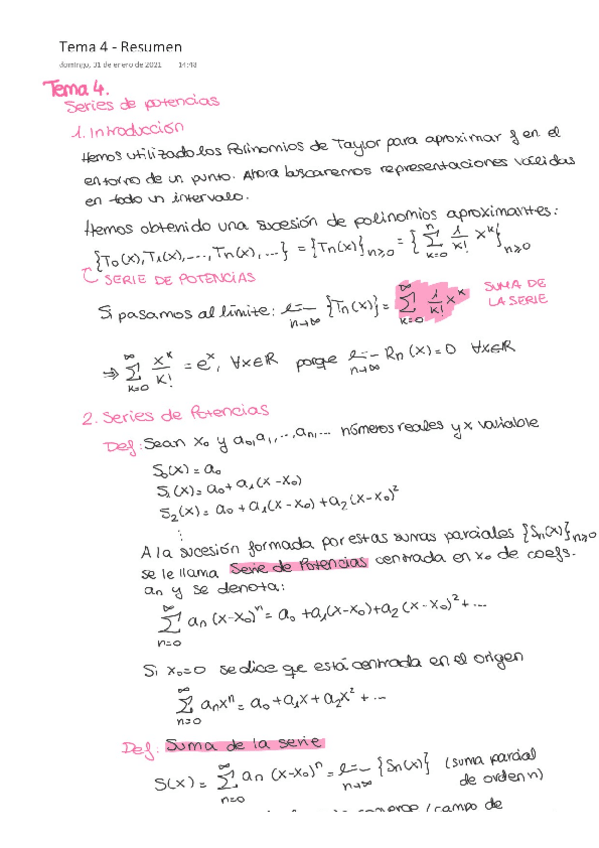 Tema 4 - Resumen
domingo, 31 de enero de 2021 14:48
Tema 4.
Series de potencias
1. Introducción
Hemos utilizado los Polinomios de Taylor para aproximar f en el
entorno de un punto. Ahora buscaremos representaciones válidas
en todo un intervalo.
Hemos obtenido una sucesión de polinomios aproximantes:
{T₀(x), T₁(x), ..., Tn(x), ...} = {Tn(x)}n≥0 = { ∑_{k=0}^{n} 1/k! x^k }n≥0
SERIE DE POTENCIAS
Si pasamos al límite: lim_{n→∞} {Tn(x)} = ∑_{k=0}^{∞} 1/k! x^k SUMA DE
LA SERIE
⇒ ∑_{k=0}^{∞} x^k/k! = e^x, ∀x∈ℝ porque lim_{n→∞} Rn(x) = 0 ∀x∈ℝ
2. Series de Potencias
Def: Sean x₀ y a₀, a₁, ..., an, ... números reales y x variable
S₀(x) = a₀
S₁(x) = a₀ + a₁(x - x₀)
S₂(x) = a₀ + a₁(x - x₀) + a₂(x - x₀)²
⋮
A la sucesión formada por estas sumas parciales {Sn(x)}n≥0
se le llama Serie de Potencias centrada en x₀ de coefs.
an y se denota:
∑_{n=0}^{∞} an (x - x₀)^n = a₀ + a₁(x - x₀) + a₂(x - x₀)² + ...
Si x₀=0 se dice que está centrada en el origen
∑_{n=0}^{∞} an x^n = a₀ + a₁x + a₂x² + ...
Def: Suma de la serie
S(x) = ∑_{n=0}^{∞} an (x - x₀)^n = lim_{n→∞} {Sn(x)} (suma parcial
de orden n)
(campo de